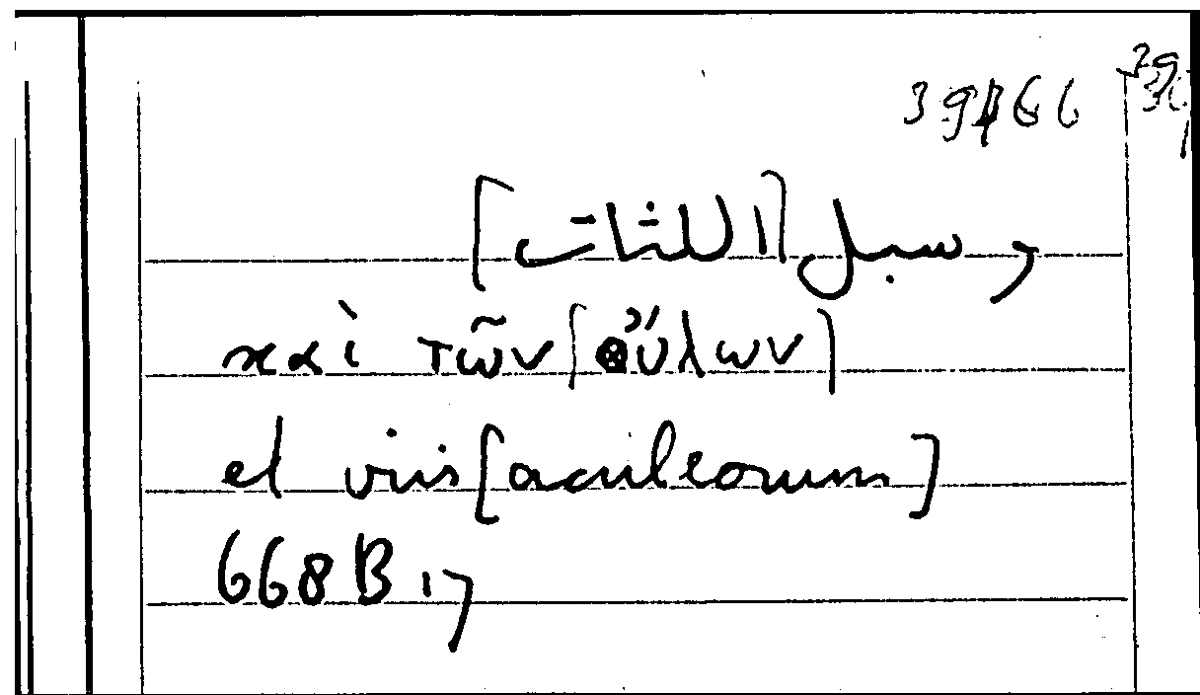 39166
و سبل [اللثات]
καὶ τῶν [οὔλων]
et viis [aculeorum]
668 B 17